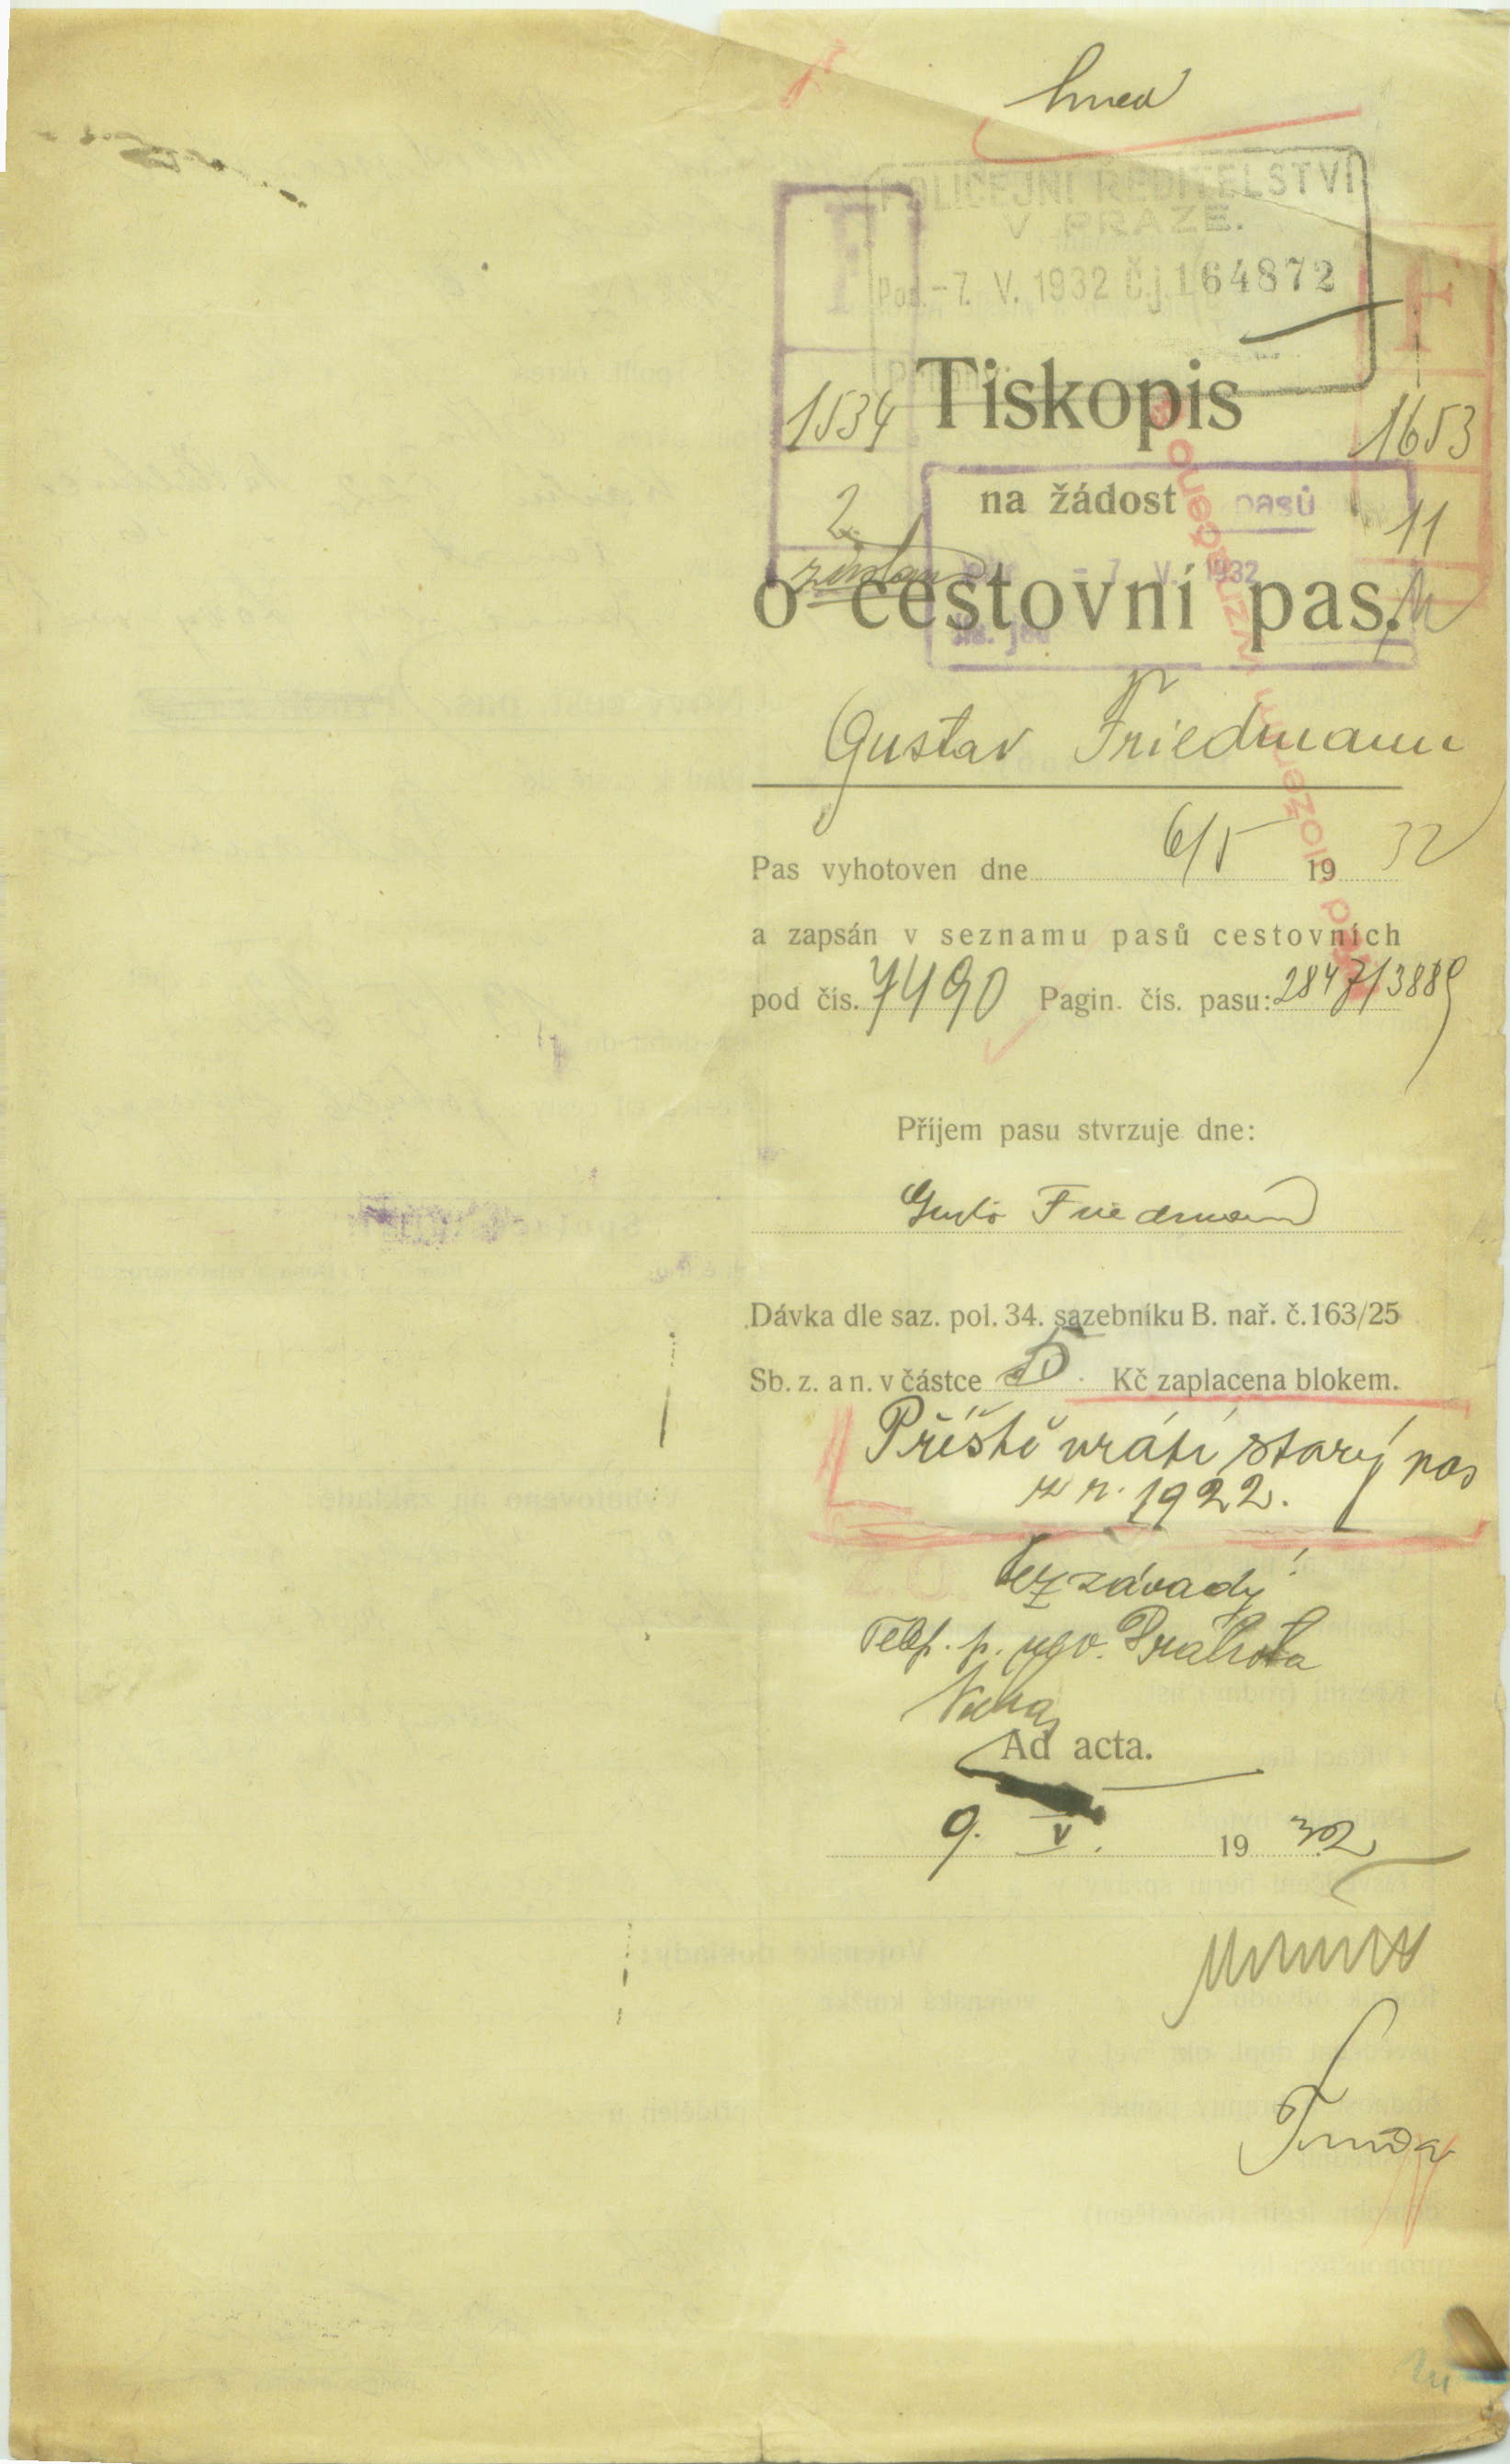 hned
POLICEJNÍ ŘEDITELSTVÍ
V PRAZE.
Pod. -7. V. 1932 Č.j. 164872
F
F
1534
Tiskopis
1653
2
na žádost
pasů
11
- 7. V. 1932
o cestovní pas.
Čís. jed.
Gustav Friedmann
Pas vyhotoven dne 6/5 19 32
a zapsán v seznamu pasů cestovních
pod čís. 7490 Pagin. čís. pasu: 2847/3889
Příjem pasu stvrzuje dne:
Friedmann
Dávka dle saz. pol. 34. sazebníku B. nař. č. 163/25
Sb. z. a n. v částce 5 Kč zaplacena blokem.
Příště vrátí starý pas
z r. 1922.
bez závady!
Telef. p.
Ad acta.
9. V. 19 32